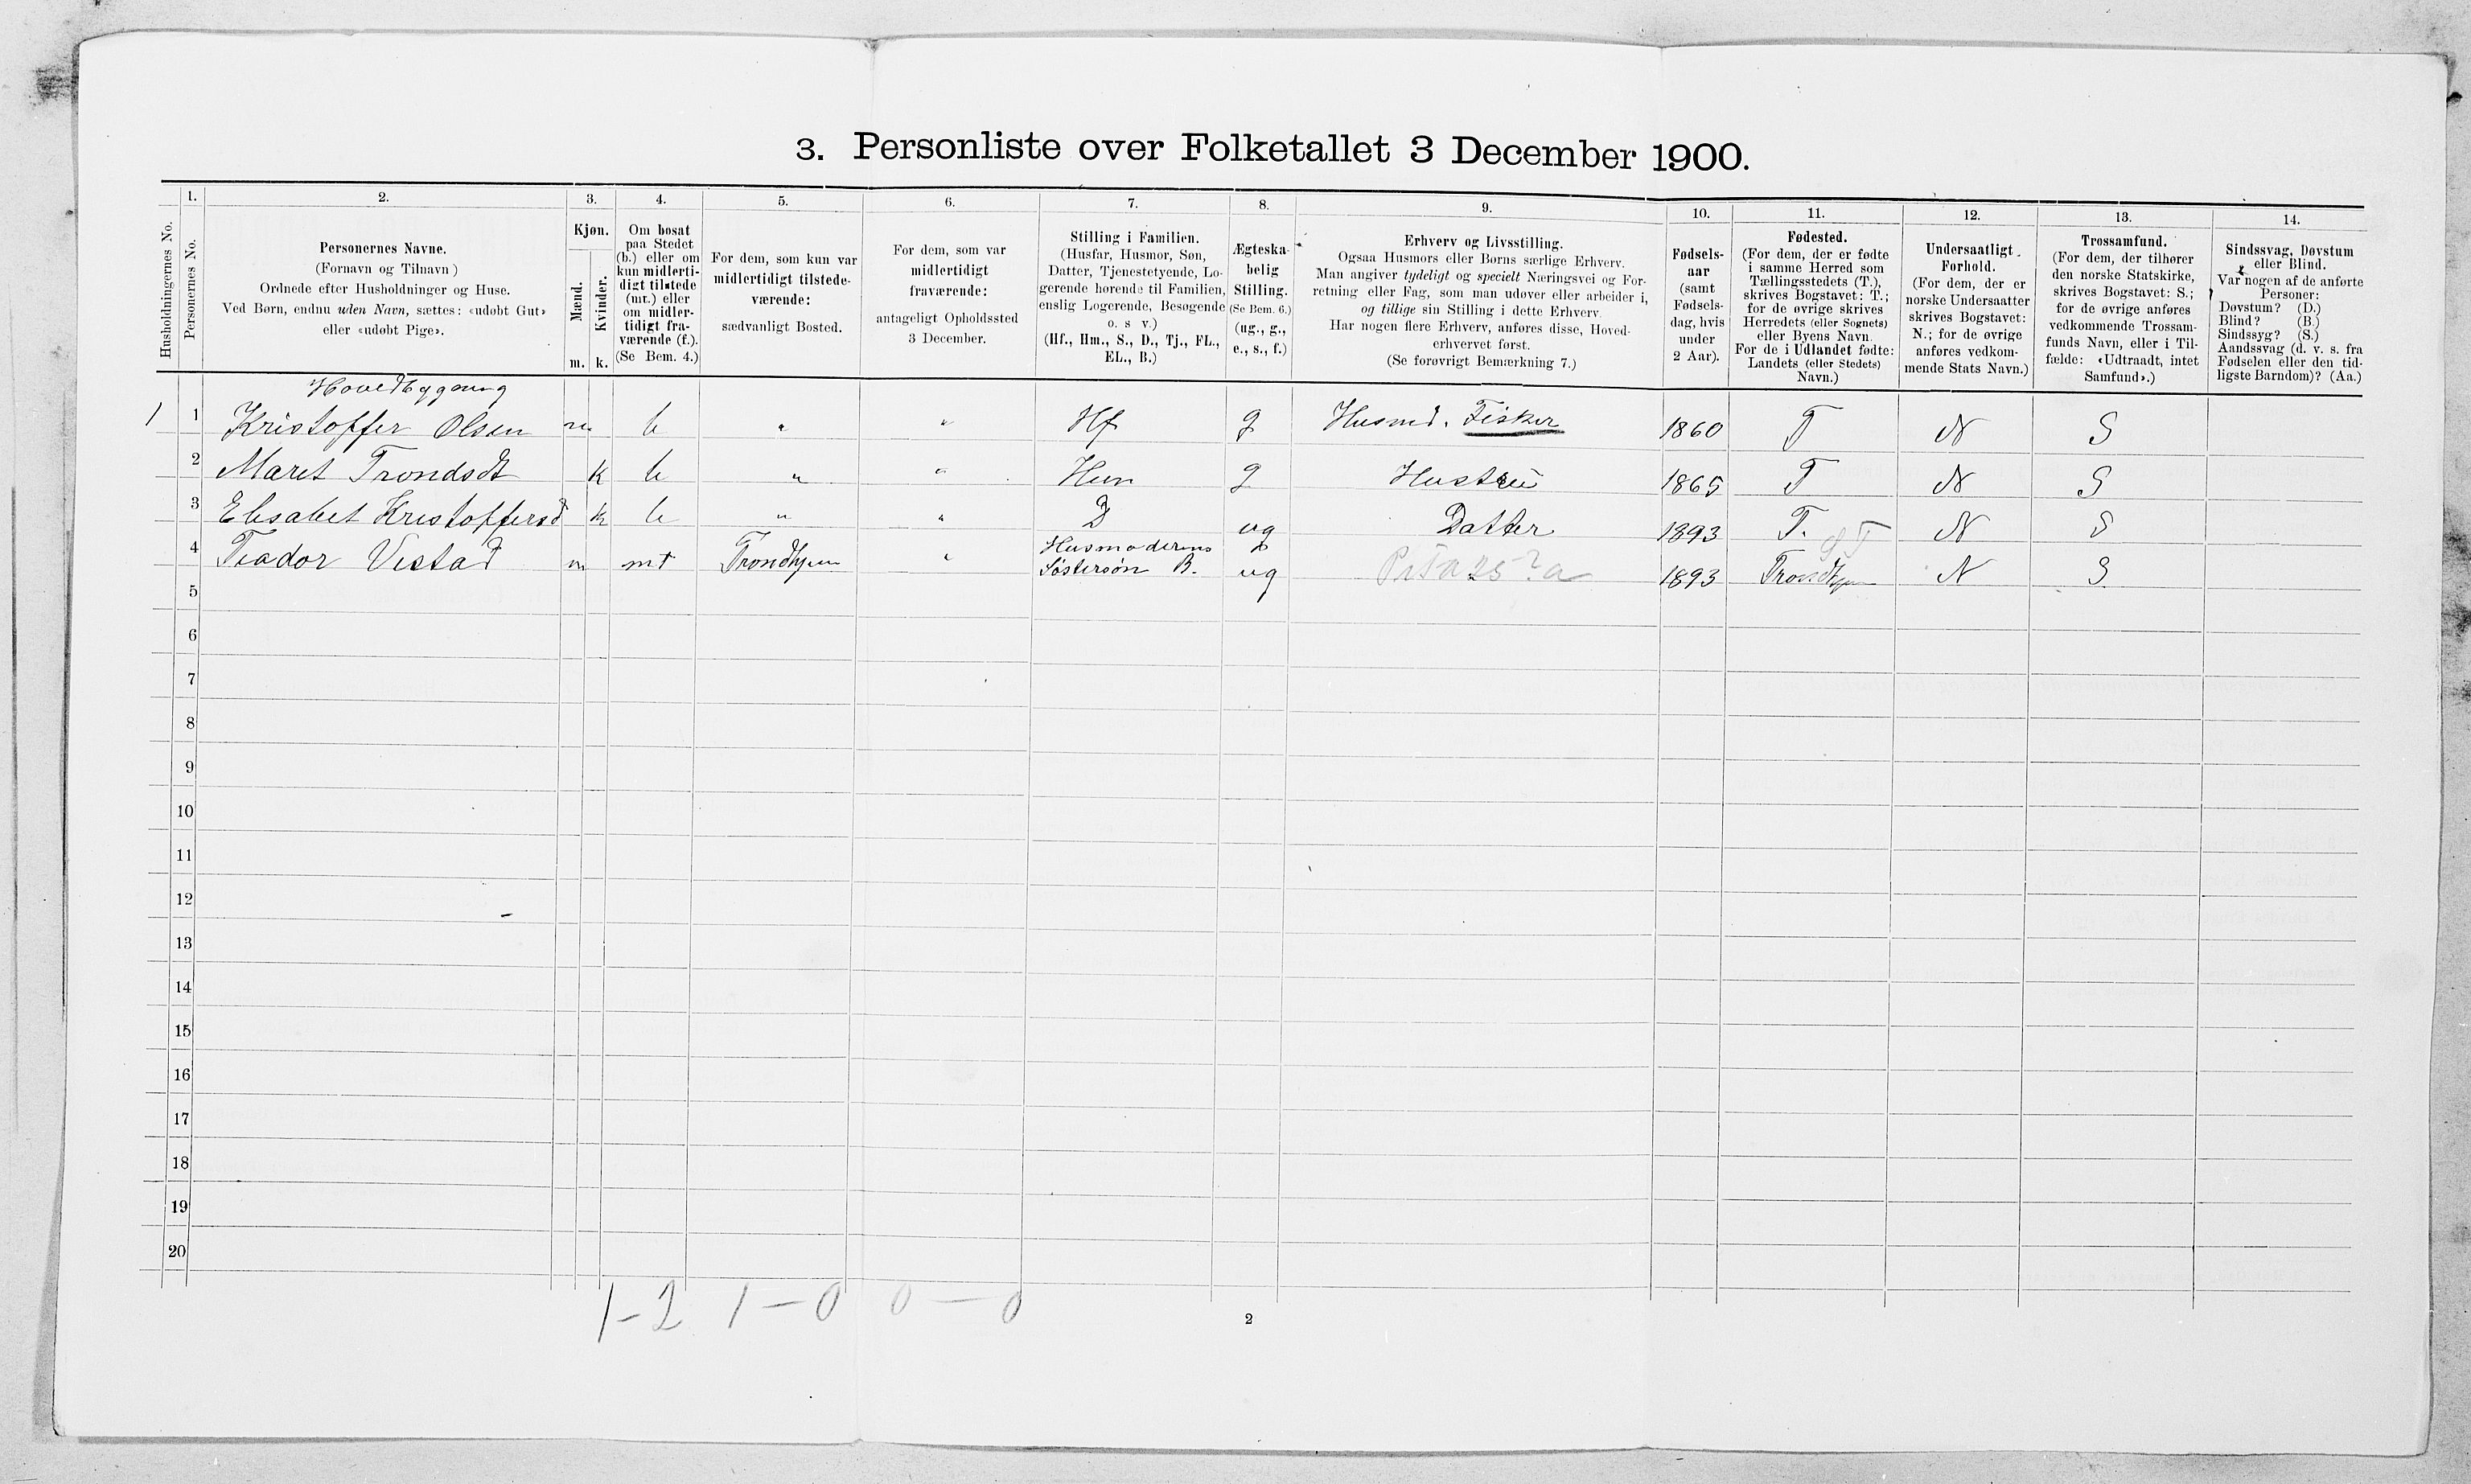 3. Personliste over Folketallet 3 December 1900.
Husholdningernes No.
1.
Personernes No.
2.
Personernes Navne.
(Fornavn og Tilnavn)
Ordnede efter Husholdninger og Huse.
Ved Børn, endnu uden Navn, sættes: «udøbt Gut»
eller «udøbt Pige».
3.
Kjøn.
Mænd.
Kvinder.
m. k.
4.
Om bosat
paa Stedet
(b.) eller om
kun midlerti-
digt tilstede
(mt.) eller
om midler-
tidigt fra-
værende (f.).
(Se Bem. 4.)
5.
For dem, som kun var
midlertidigt tilstede-
værende:
sædvanligt Bosted.
6.
For dem, som var
midlertidigt
fraværende:
antageligt Opholdssted
3 December.
7.
Stilling i Familien.
(Husfar, Husmor, Søn,
Datter, Tjenestetyende, Lo-
gerende hørende til Familien,
enslig Logerende, Besøgende
o. s v.)
(Hf., Hm., S., D., Tj., FL.,
EL., B.)
8.
Ægteska-
belig
Stilling.
(Se Bem. 6.)
(ug., g.,
e., s., f.)
9.
Erhverv og Livsstilling.
Ogsaa Husmors eller Børns særlige Erhverv.
Man angiver tydeligt og specielt Næringsvei og For-
retning eller Fag, som man udøver eller arbeider i,
og tillige sin Stilling i dette Erhverv.
Har nogen flere Erhverv, anføres disse, Hoved-
erhvervet først.
(Se forøvrigt Bemærkning 7.)
10.
Fødsels-
aar
(samt
Fødsels-
dag, hvis
under
2 Aar).
11.
Fødested.
(For dem, der er fødte
i samme Herred som
Tællingsstedets (T.),
skrives Bogstavet: T.;
for de øvrige skrives
Herredets (eller Sognets)
eller Byens Navn.
For de i Udlandet fødte:
Landets (eller Stedets)
Navn.)
12.
Undersaatligt
Forhold.
(For dem, der er
norske Undersaatter
skrives Bogstavet:
N.; for de øvrige
anføres vedkom-
mende Stats Navn.)
13.
Trossamfund.
(For dem, der tilhører
den norske Statskirke,
skrives Bogstavet: S.;
for de øvrige anføres
vedkommende Trossam-
funds Navn, eller i Til-
fælde: «Udtraadt, intet
Samfund».)
14.
Sindssvag, Døvstum
eller Blind.
Var nogen af de anførte
Personer:
Døvstum? (D.)
Blind? (B.)
Sindssyg? (S.)
Aandssvag (d. v. s. fra
Fødselen eller den tid-
ligste Barndom)? (Aa.)
Hovedbygning
1 1 Kristoffer Olsen m b " " Hf g Husmd. Fisker 1860 T N S
2 Maret Trondsdt k b " " Hm g Hustru 1865 T N S
3 Elisabet Kristoffersd k b " " D ug Datter 1893 T. N S
4 Teador Vestad m mt Trondhjem " Husmoderens Søstersøn B. ug 1893 Trondhjem N S
5
6
7
8
9
10
11
12
13
14
15
16
17
18
19
20
1-2 1-0 0-0
2